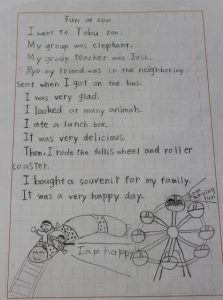 Fun at zoo
I went to Tobu zoo.
My group was elephant.
My group teacher was Josh.
Ryo my friend was in the neighboring
seat when I got on the bus.
I was very glad.
I looked at many animals.
I ate a lunch box.
It was very delicious.
Then. I rode the fellis wheel and roller
coaster.
I bought a souvenir for my family.
It was a very happy day.
I am happy
having
fun